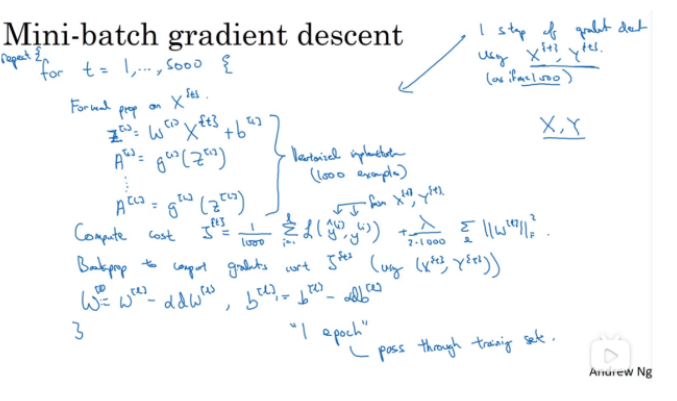 Mini-batch gradient descent
repeat {
for t = 1, ..., 5000 {
Forward prop on X^{t}.
Z^[1] = W^[1] X^{t} + b^[1]
A^[1] = g^[1](Z^[1])
⋮
A^[L] = g^[L](Z^[L])
Vectorized implementation
(1000 examples)
Compute cost J^{t} = 1/1000 Σ_{i=1}^{l} L(ŷ^(i), y^(i)) + λ/(2·1000) Σ_l ||W^[l]||_F^2.
from X^{t}, Y^{t}.
Backprop to compute gradients wrt J^{t} (using (X^{t}, Y^{t}))
W^[l] = W^[l] - αdW^[l], b^[l] = b^[l] - αdb^[l]
}
"1 epoch"
pass through training set.
1 step of gradient descent
using X^{t}, Y^{t}.
(as if m=1000)
X, Y
Andrew Ng